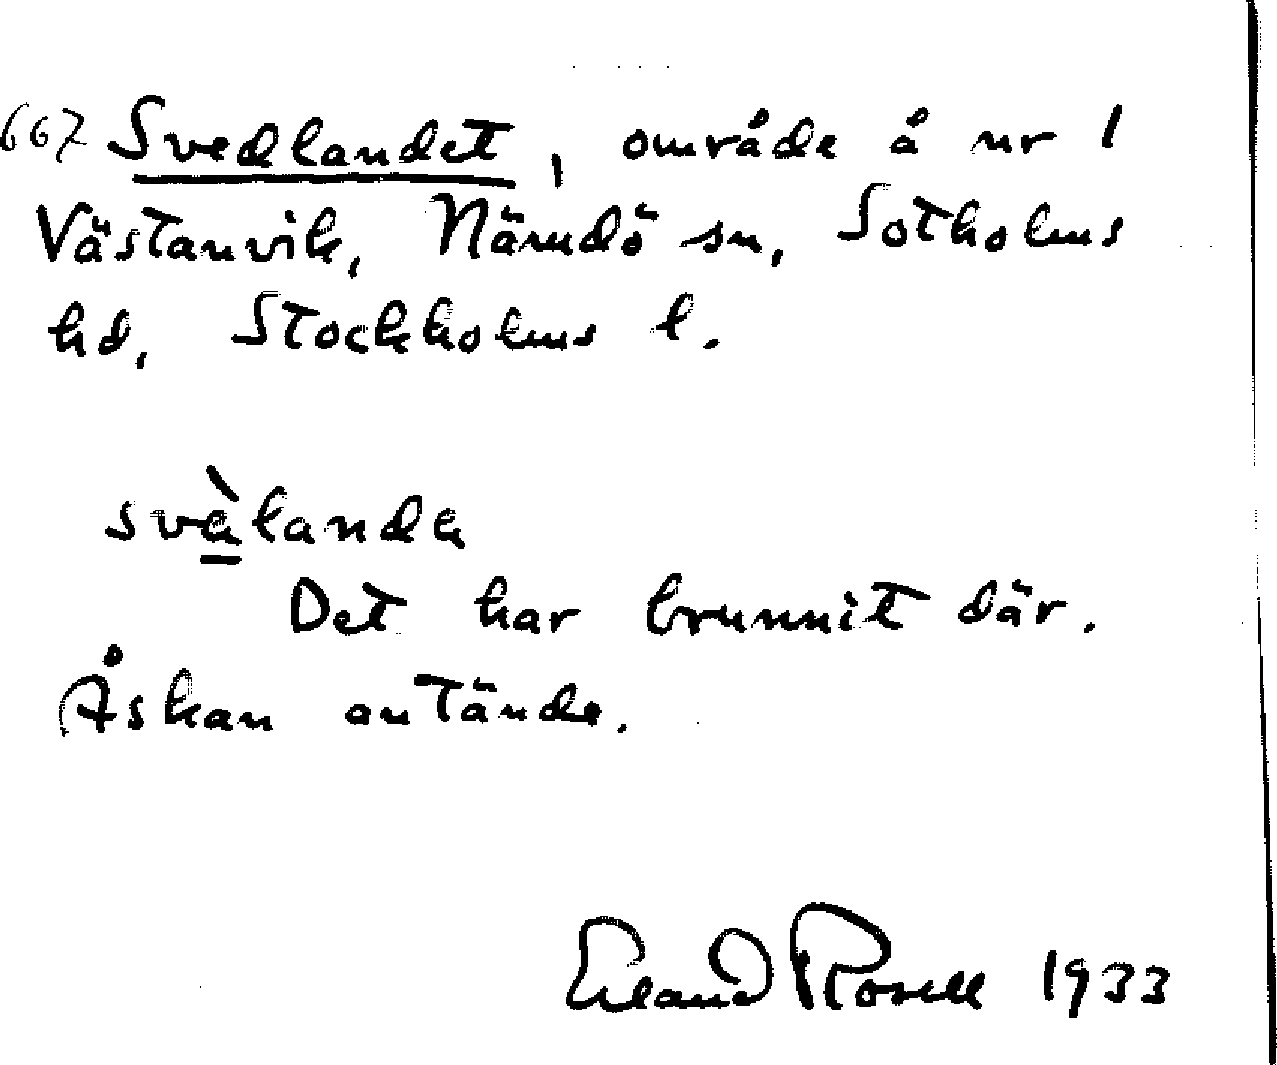 667 Svedlandet, område å nr 1
Västanvik, Nämdö sn, Sotholms
hd, Stockholms l.
svàlanda
Det har brunnit där.
Åskan antände.
Erland Rosell 1933